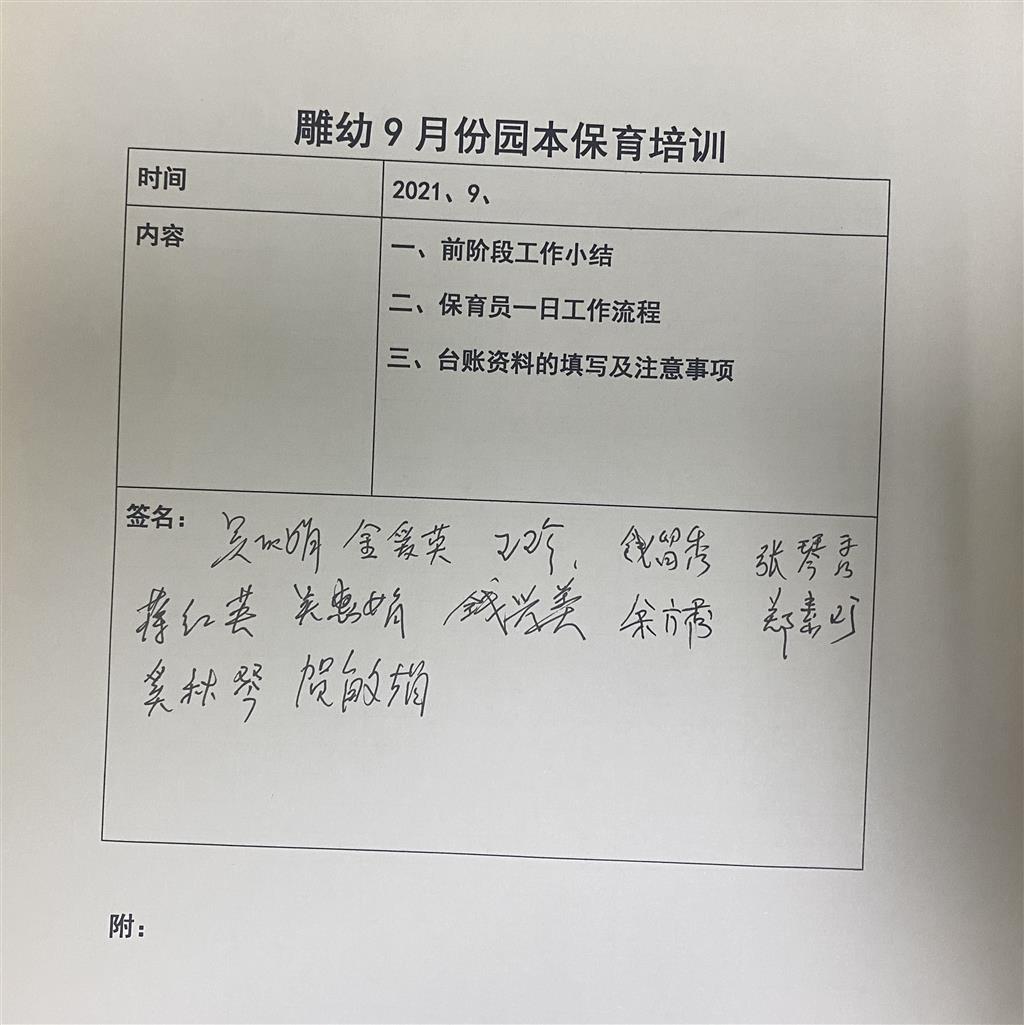 雕幼9月份园本保育培训
时间
2021、9、
内容
一、前阶段工作小结
二、保育员一日工作流程
三、台账资料的填写及注意事项
签名：
金爱英 王珍 钱留秀 张琴秀
蒋红英 吴惠娟 钱兴美 余方秀 郑素
奚秋琴 贺敏娟
附：